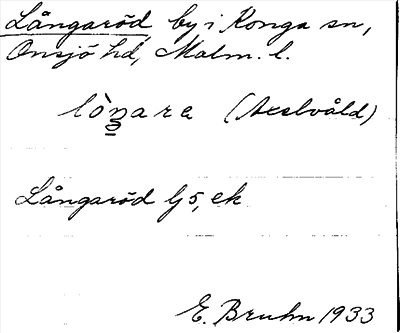 Långaröd by i Konga sn,
Onsjö hd, Malm. l.
lòŋ̲ara (Axelvåld)
Långaröd G 5, ek
E. Bruhn 1933